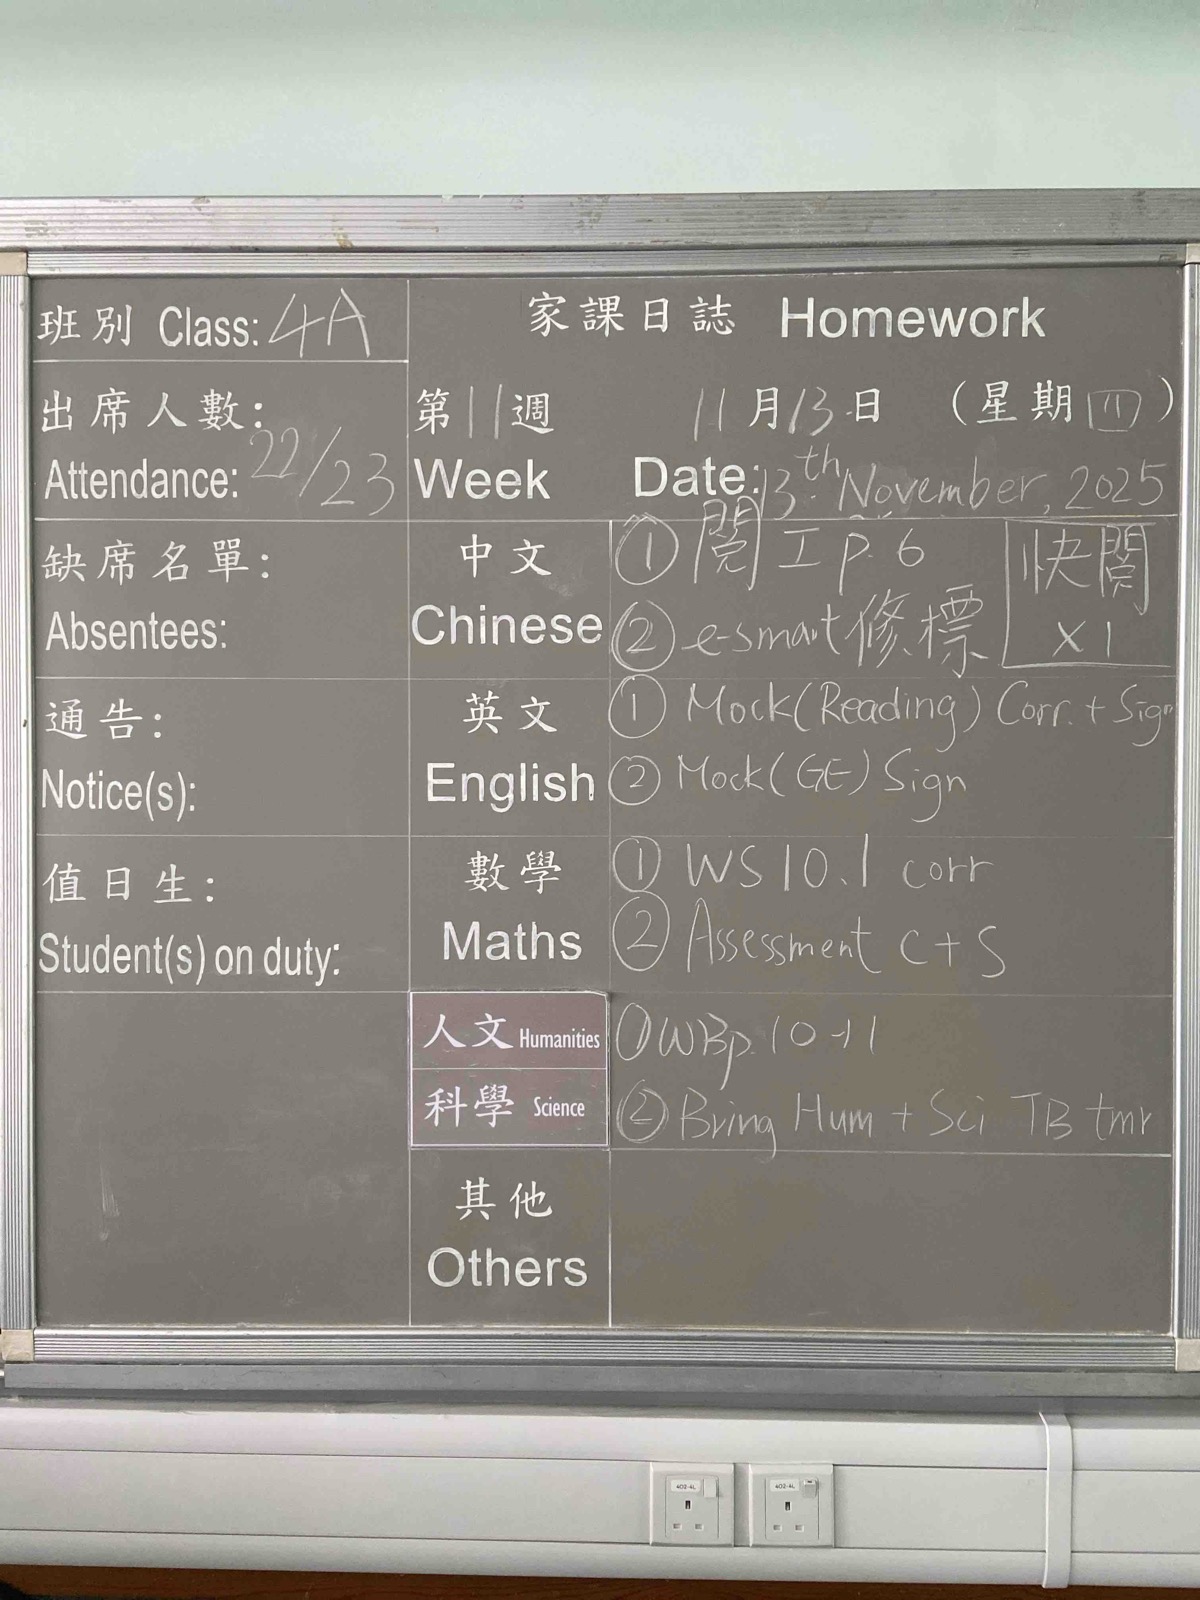 班別 Class: 4A
家課日誌 Homework
出席人數:
Attendance: 22/23
第11週
Week
11月13日 (星期四)
Date: 13th November, 2025
缺席名單:
Absentees:
中文
Chinese
① 閱工 p. 6
② e-smart 修標
快閱
x1
通告:
Notice(s):
英文
English
① Mock (Reading) Corr. + Sign
② Mock (GE) Sign
值日生:
Student(s) on duty:
數學
Maths
① WS 10.1 corr
② Assessment C + S
人文 Humanities
① WB p. 10-11
科學 Science
② Bring Hum + Sci TB tmr
其他
Others
402-4L
402-4L